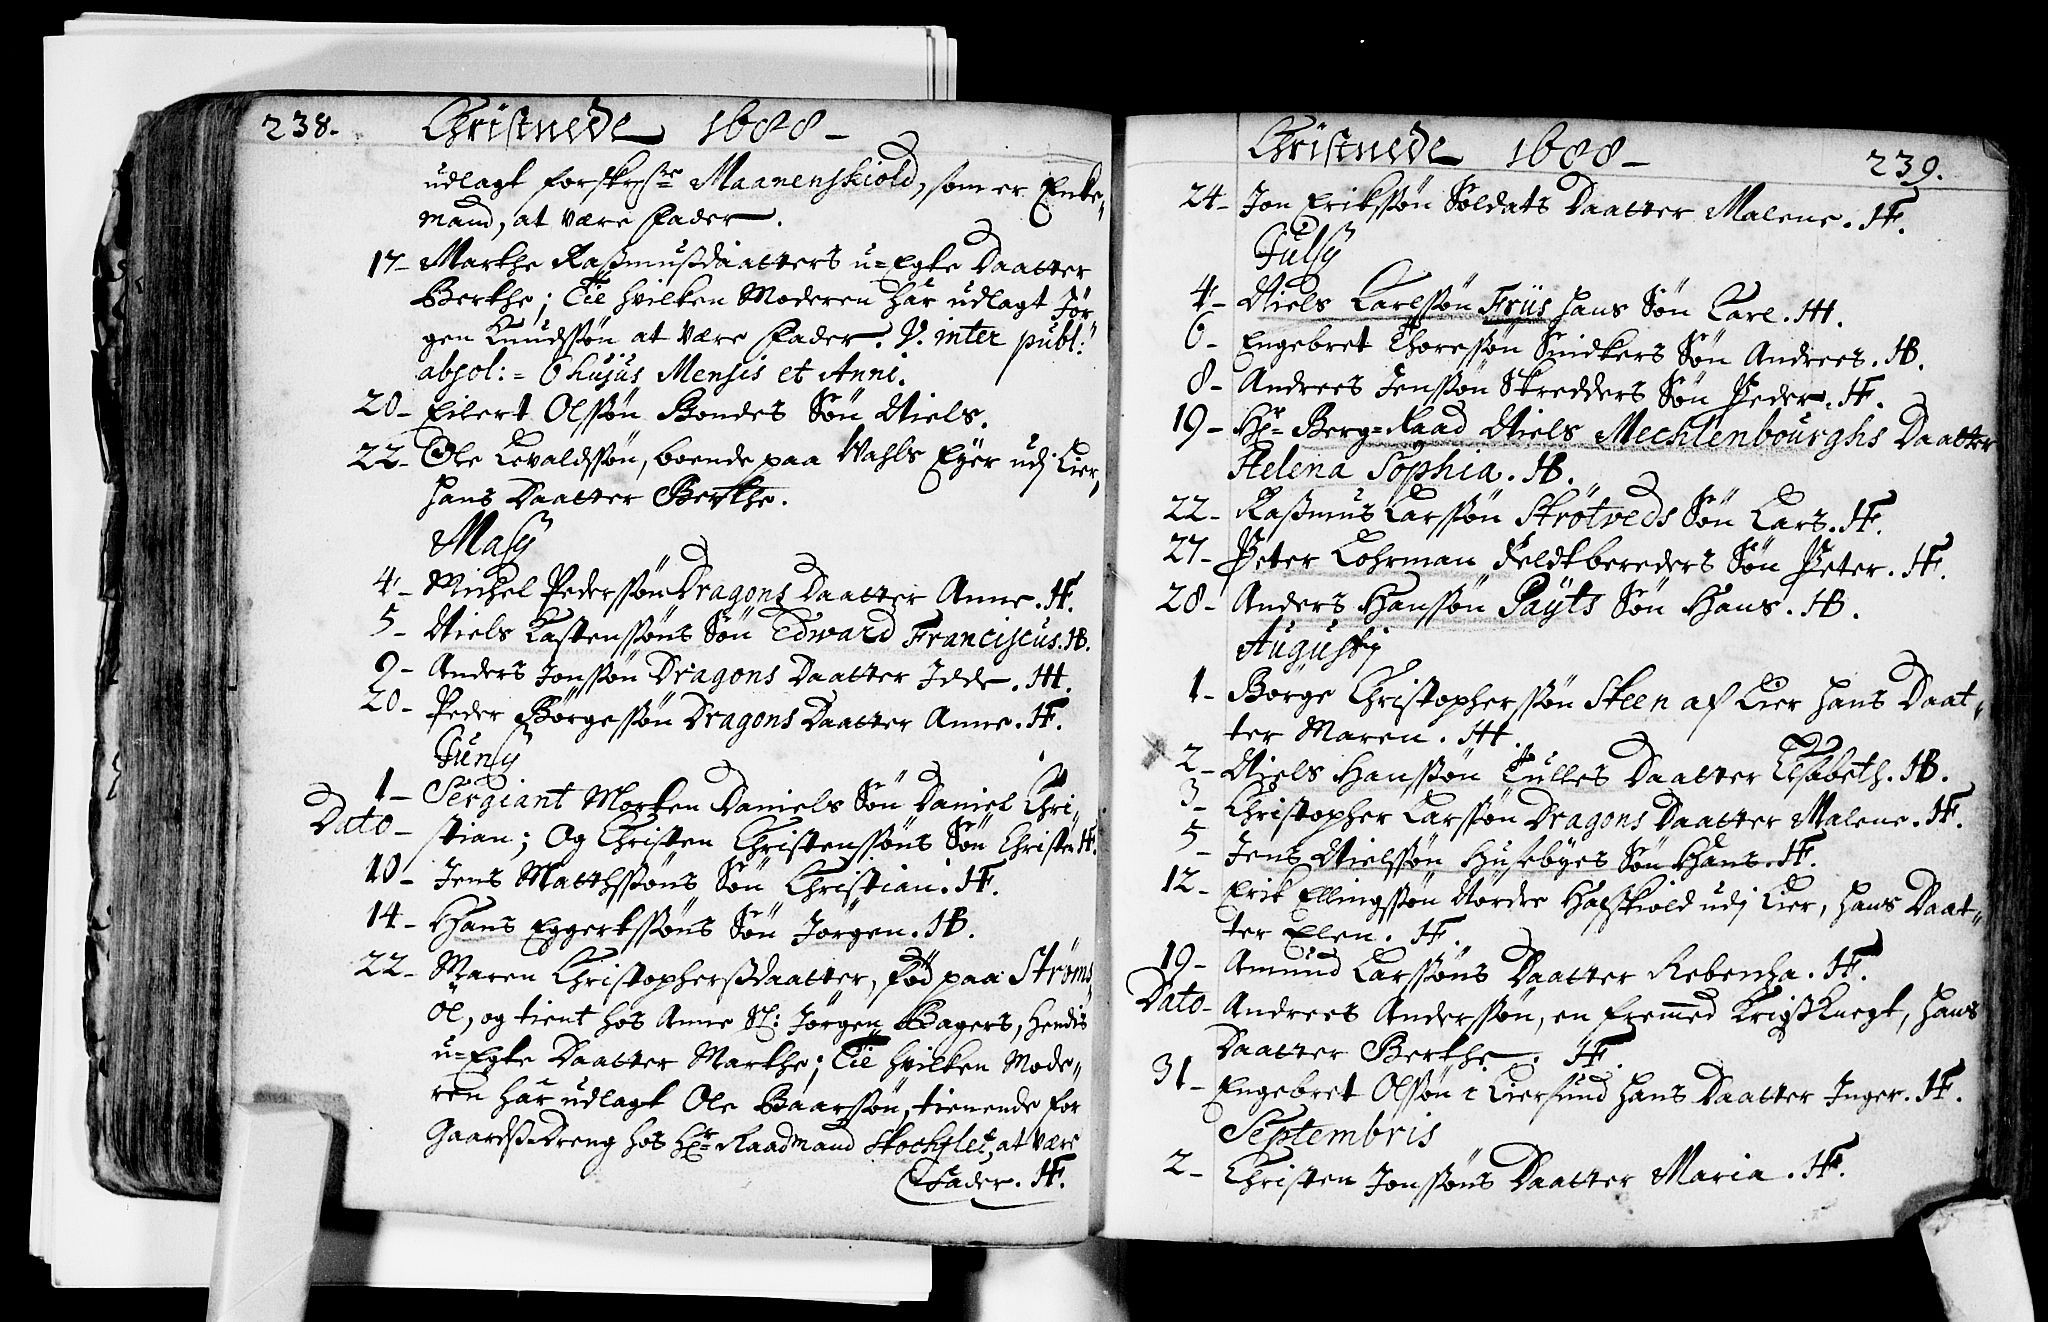 238. Christnede 1688 -
udlagt forskr:ne Maanenskiold, som er Enke-
mand, at være Fader.
17 - Marthe Rasmusdaatters u=Egte Daatter
Berthe; Til hvilken Moderen har udlagt Jör-
gen Knudssön at være Fader. V. inter publ:
absol: = 6 hujus Mensis et Anni.
20 - Eilert Olssön Bondes Sön Niels.
22 - Ole Levaldssön, boende paa Wahls Eyer udj Lier,
hans Daatter Berthe.
Maij
4 - Michel Pederssön Dragons Daatter Anne. HF.
5 - Niels Karstenssöns Sön Edward Franciscus. HB.
9 - Anders Jonssön Dragons Daatter Idde. HH.
20 - Peder Börgessön Dragons Daatter Anne. HF.
Junij
1 - Sergiant Morten Daniels Sön Daniel Chri-
Dato - stian; Og Christen Christenssöns Sön Christen HF.
10 - Jens Matthssöns Sön Christian. HF.
14 - Hans Eggertssöns Sön Jörgen. HB.
22 - Maren Christophersdaatter, föd paa Ströms
öl, og tient hos Anne Sl: Jörgen Bagers, hendis
u=Egte Daatter Marthe; Til hvilken Mode-
ren har udlagt Ole Baarssön, tienende for
Gaards=Dreng hos Hr= Raadmand Stockflet, at være
Fader. HF.
Christnede 1688 - 239.
24 - Jon Erikssön Soldats Daatter Malene. HF.
Julij
4 - Niels Karlssön Friis hans Sön Karl. HH.
6 - Engebret Thoressön Snidkers Sön Andrees. HB.
8 - Andrees Jenssön Skredders Sön Peder. HF.
19 - Hr= Berg=Raad Niels Mechlenbourghs Daatter
Helena Sophia. HB.
22 - Rasmus Larssön Strötveds Sön Lars. HF.
27 - Peter Lohrman Feldtbereders Sön Peter. HF.
28 - Anders Hanssön Paÿts Sön Hans. HB.
Augustij
1 - Börge Christopherssön Steen af Lier hans Daat-
ter Maren. HH.
2 - Niels Hanssön Tulles Daatter Elsebeth. HB.
3 - Christopher Larssön Dragons Daatter Malene. HF.
5 - Jens Nielssön Husebÿes Sön Hans. HF.
12 - Erik Ellingssön Nordre Hafskiold udj Lier, hans Daat-
ter Elen. HF.
19 - Amund Larssöns Daatter Rebecha. HF.
Dato - Andrees Anderssön, en fremmed Krigsknegt, hans
Daatter Berthe. HF.
31 - Engebret Olssön i Liersund hans Daatter Inger. HF.
Septembris
2 - Christen Jonssöns Daatter Maria. HF.